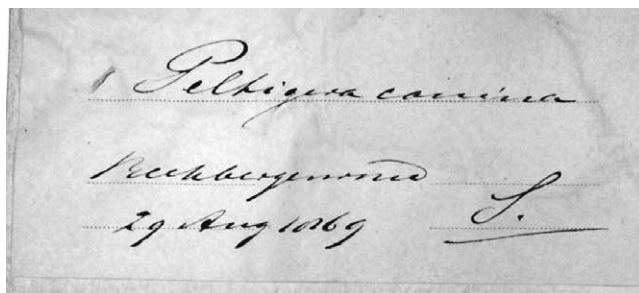 Peltigera canina
Beekbergerwoud
29 Aug 1869 S.